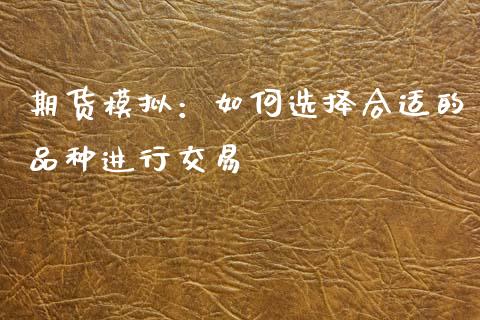 期货模拟：如何选择合适的
品种进行交易